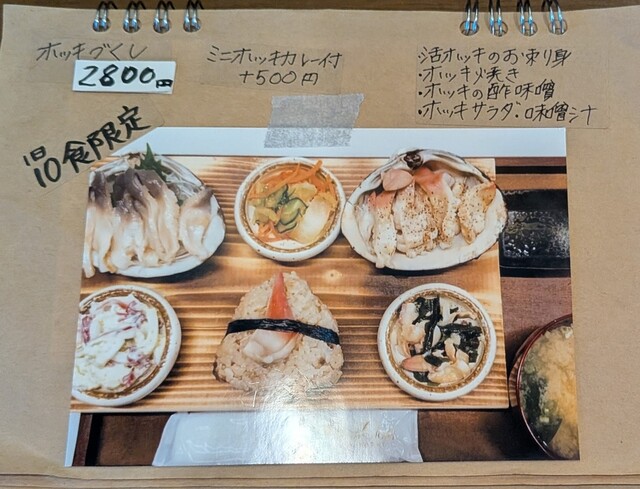 ホッキづくし
2800円
ミニホッキカレー付
+500円
活ホッキのお刺り身
・ホッキ焼き
・ホッキの酢味噌
・ホッキサラダ・味噌汁
1日10食限定